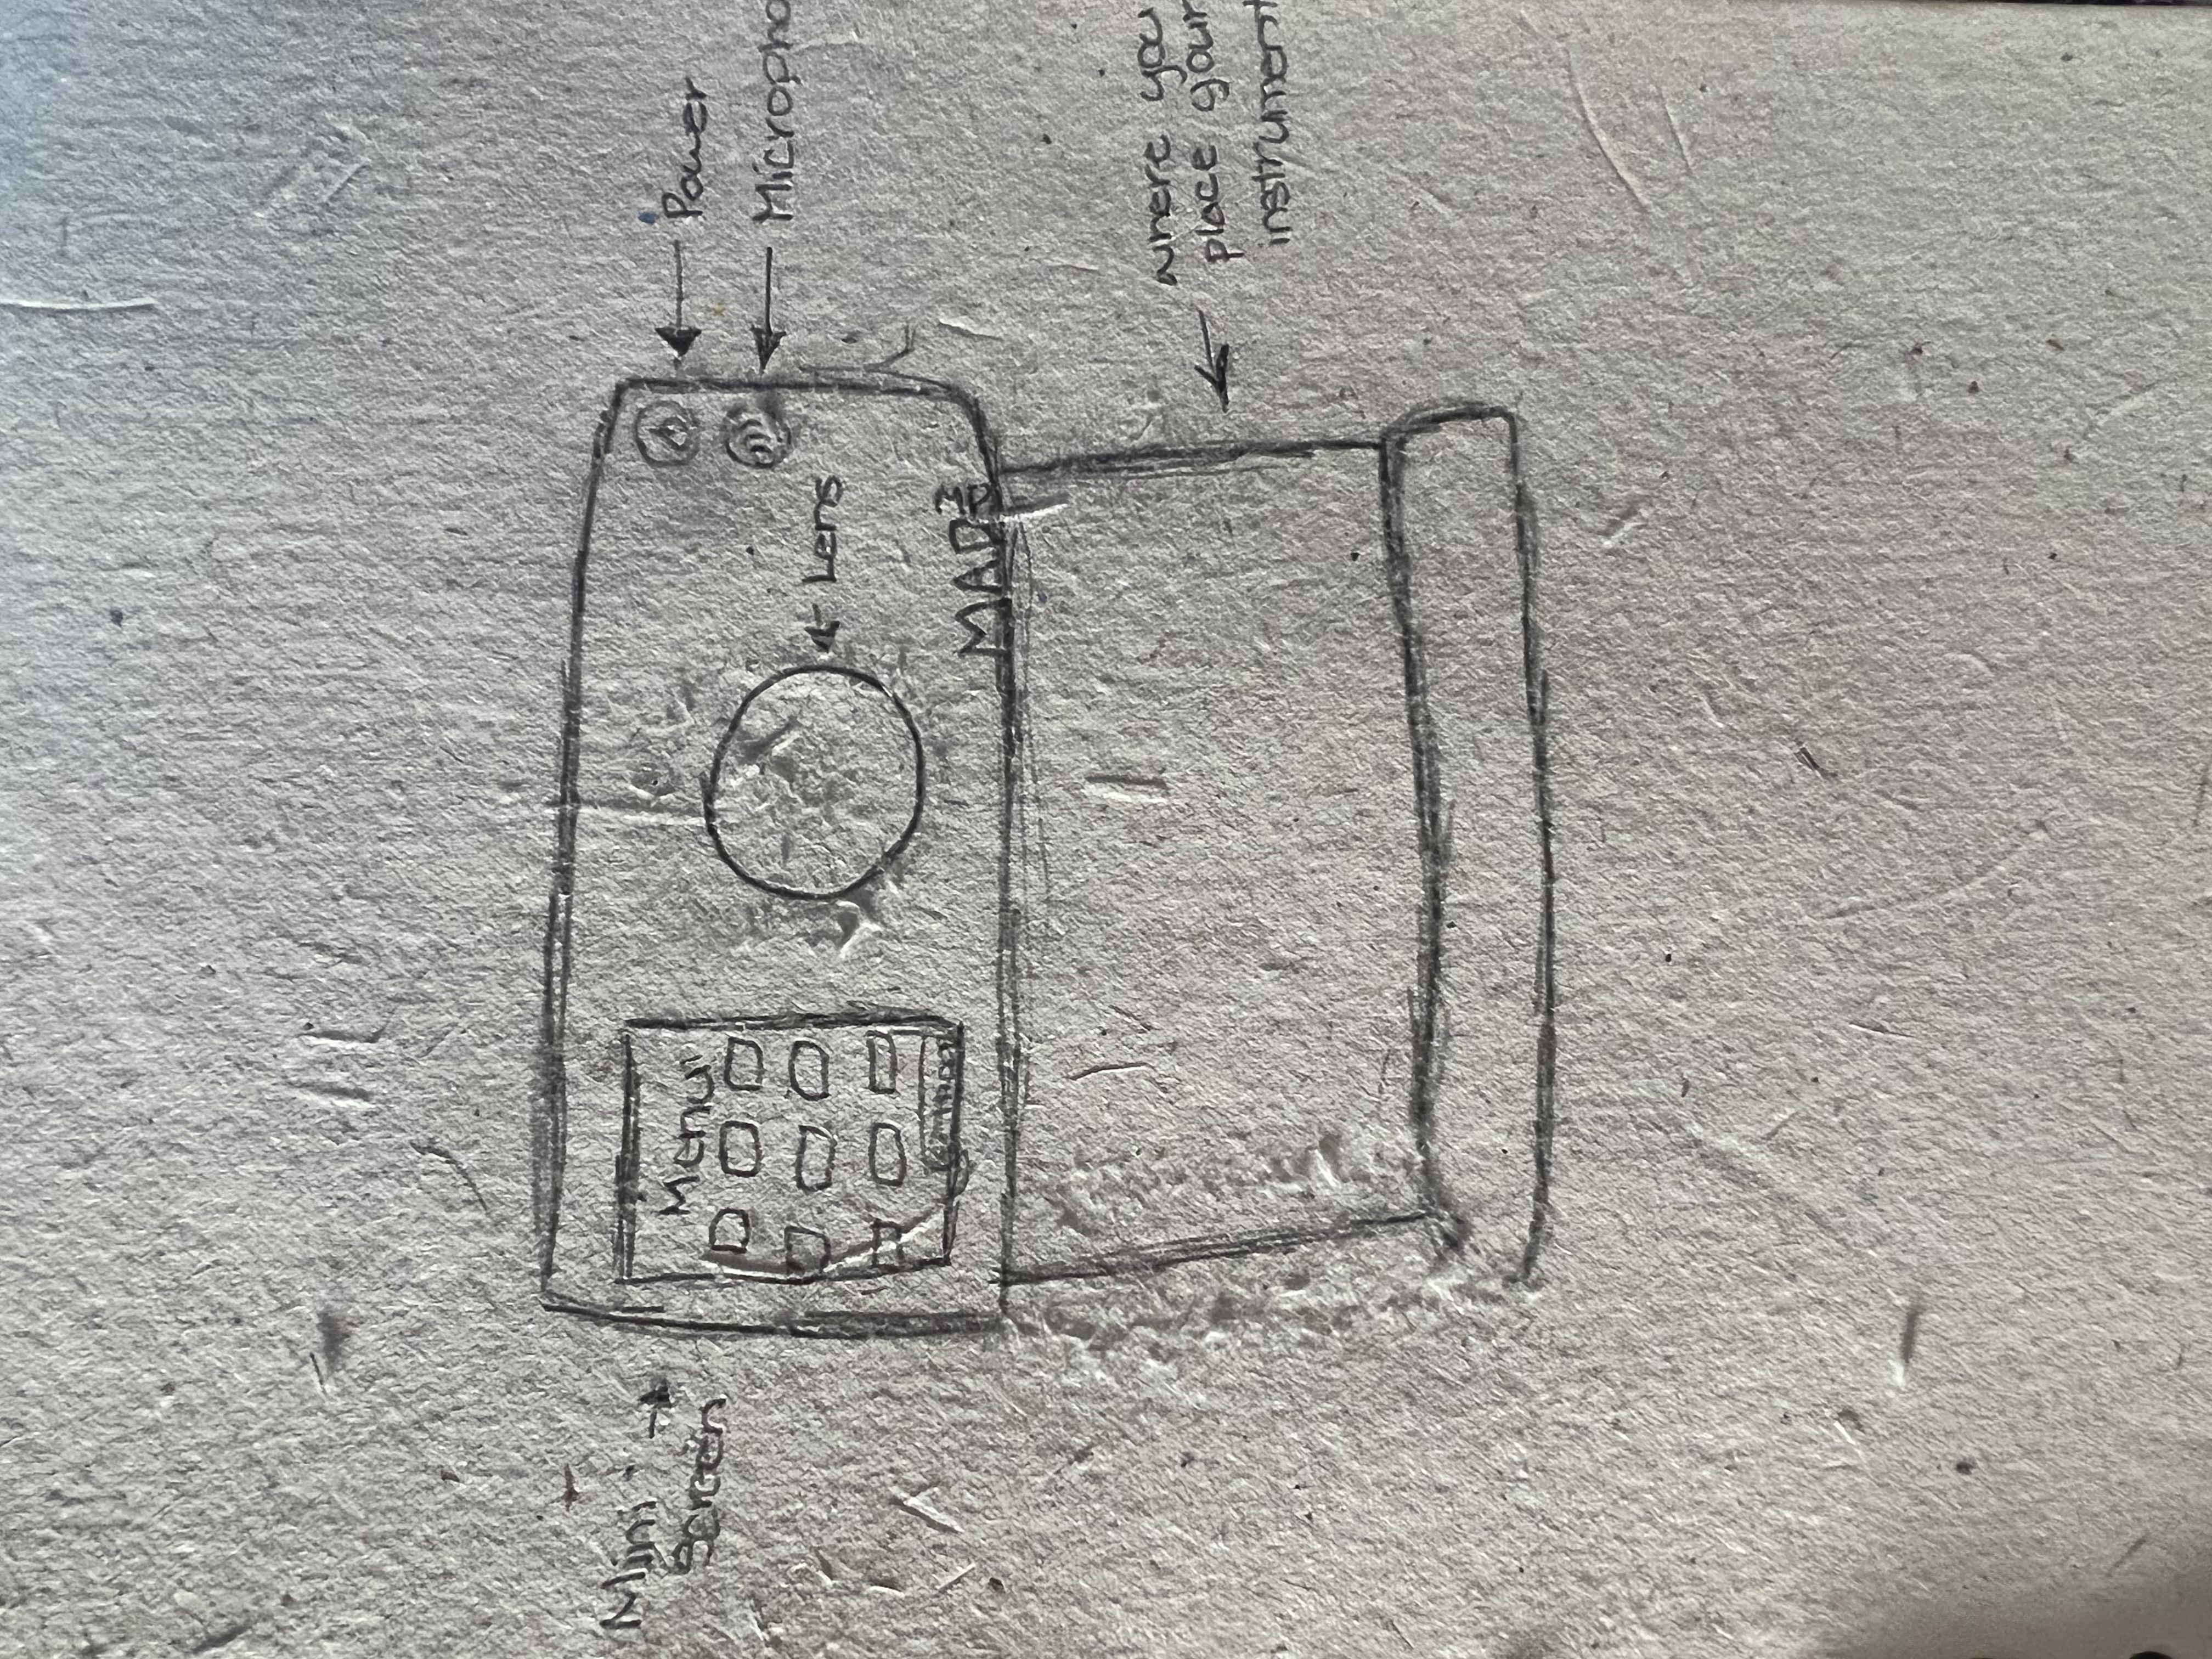 Mini
screen
Menu
Power
Micropho
Lens
MAD
where you
place your
instrument